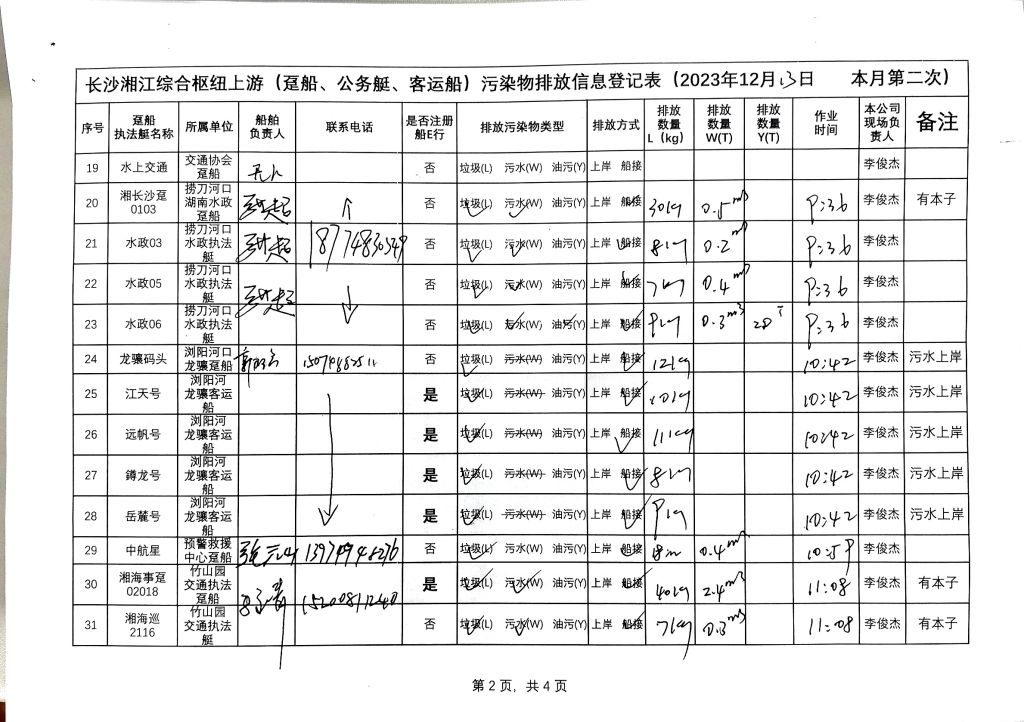 长沙湘江综合枢纽上游（趸船、公务艇、客运船）污染物排放信息登记表（2023年12月13日 本月第二次）
序号 趸船执法艇名称 所属单位 船舶负责人 联系电话 是否注册船E行 排放污染物类型 排放方式 排放数量L（kg） 排放数量W(T) 排放数量Y(T) 作业时间 本公司现场负责人 备注
19 水上交通 交通协会趸船 无人 否 垃圾(L) 污水(W) 油污(Y) 上岸 船接 李俊杰
20 湘长沙趸0103 捞刀河口湖南水政趸船 否 垃圾(L) 污水(W) 油污(Y) 上岸 船接 30kg 0.5m3 9:36 李俊杰 有本子
21 水政03 捞刀河口水政执法艇 否 垃圾(L) 污水(W) 油污(Y) 上岸 船接 8kg 0.2m3 9:36 李俊杰
22 水政05 捞刀河口水政执法艇 否 垃圾(L) 污水(W) 油污(Y) 上岸 船接 7kg 0.4m3 9:36 李俊杰
23 水政06 捞刀河口水政执法艇 否 垃圾(L) 污水(W) 油污(Y) 上岸 船接 9kg 0.3m3 9:36 李俊杰
24 龙骧码头 浏阳河口龙骧趸船 否 垃圾(L) 污水(W) 油污(Y) 上岸 船接 12kg 10:42 李俊杰 污水上岸
25 江天号 浏阳河龙骧客运船 是 垃圾(L) 污水(W) 油污(Y) 上岸 船接 10kg 10:42 李俊杰 污水上岸
26 远帆号 浏阳河龙骧客运船 是 垃圾(L) 污水(W) 油污(Y) 上岸 船接 11kg 10:42 李俊杰 污水上岸
27 鐏龙号 浏阳河龙骧客运船 是 垃圾(L) 污水(W) 油污(Y) 上岸 船接 8kg 10:42 李俊杰 污水上岸
28 岳麓号 浏阳河龙骧客运船 是 垃圾(L) 污水(W) 油污(Y) 上岸 船接 9kg 10:42 李俊杰 污水上岸
29 中航星 预警救援中心趸船 否 垃圾(L) 污水(W) 油污(Y) 上岸 船接 0.4m3 10:59 李俊杰
30 湘海事趸02018 竹山园交通执法趸船 是 垃圾(L) 污水(W) 油污(Y) 上岸 船接 40kg 2.4m3 11:08 李俊杰 有本子
31 湘海巡2116 竹山园交通执法艇 否 垃圾(L) 污水(W) 油污(Y) 上岸 船接 7kg 0.3m3 11:08 李俊杰 有本子
第 2 页，共 4 页